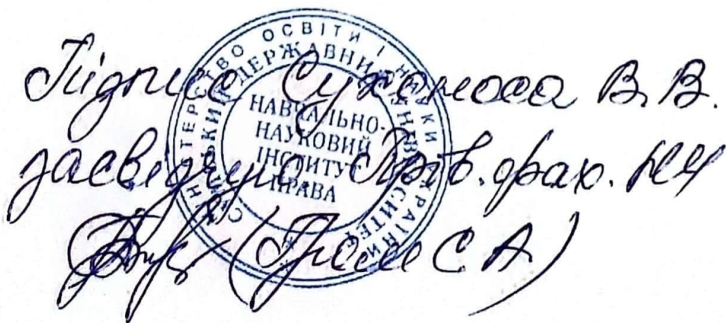 Підпис Суханоса В.В.
засвідчую Пров. фах.
МІНІСТЕРСТВО ОСВІТИ І НАУКИ УКРАЇНИ
ДЕРЖАВНИЙ УНІВЕРСИТЕТ
НАВЧАЛЬНО-
НАУКОВИЙ
ІНСТИТУТ
ПРАВА